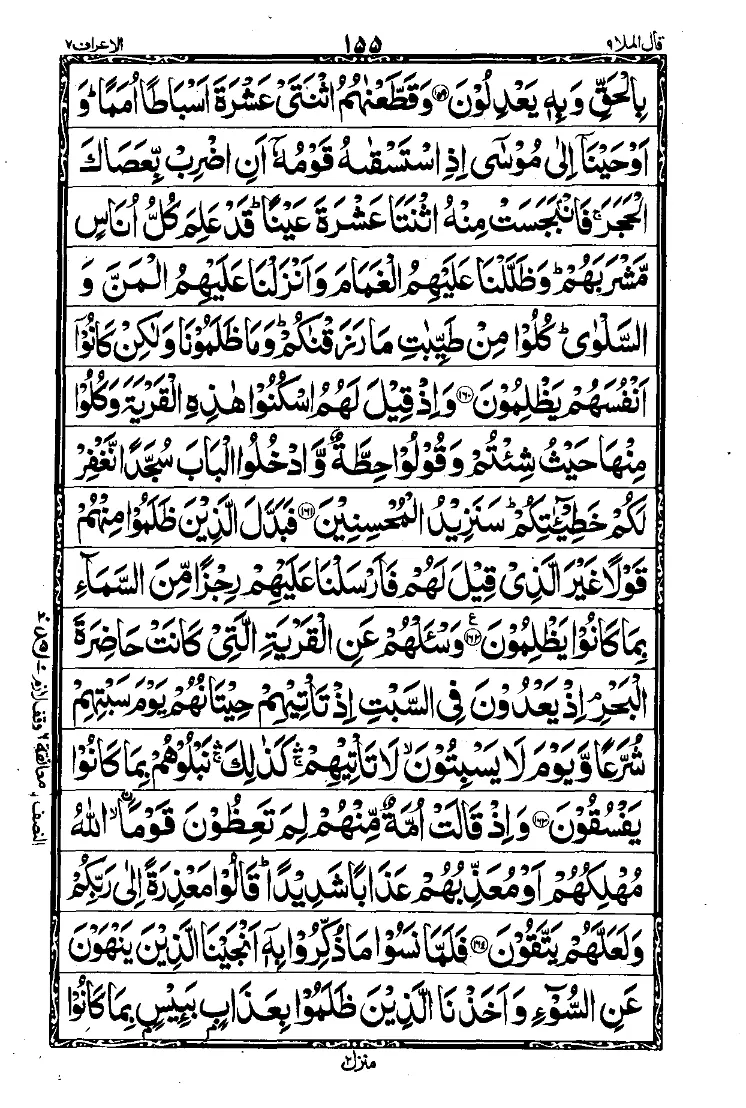 قال الملا ۹ ۱۵۵ الاعراف ۷
بِالْحَقِّ وَبِهٖ يَعْدِلُوْنَ ۝۱۵۹ وَقَطَّعْنٰهُمُ اثْنَتَيْ عَشْرَةَ اَسْبَاطًا اُمَمًا ؕ وَ
اَوْحَيْنَاۤ اِلٰى مُوْسٰٓى اِذِ اسْتَسْقٰىهُ قَوْمُهٗۤ اَنِ اضْرِبْ بِّعَصَاكَ
الْحَجَرَ ۚ فَانْۢبَجَسَتْ مِنْهُ اثْنَتَا عَشْرَةَ عَيْنًا ؕ قَدْ عَلِمَ كُلُّ اُنَاسٍ
مَّشْرَبَهُمْ ؕ وَظَلَّلْنَا عَلَيْهِمُ الْغَمَامَ وَاَنْزَلْنَا عَلَيْهِمُ الْمَنَّ وَ
السَّلْوٰى ؕ كُلُوْا مِنْ طَيِّبٰتِ مَا رَزَقْنٰكُمْ ؕ وَمَا ظَلَمُوْنَا وَلٰكِنْ كَانُوْۤا
اَنْفُسَهُمْ يَظْلِمُوْنَ ۝۱۶۰ وَاِذْ قِيْلَ لَهُمُ اسْكُنُوْا هٰذِهِ الْقَرْيَةَ وَكُلُوْا
مِنْهَا حَيْثُ شِئْتُمْ وَقُوْلُوْا حِطَّةٌ وَّادْخُلُوا الْبَابَ سُجَّدًا نَّغْفِرْ
لَكُمْ خَطِيْٓـٰٔتِكُمْ ؕ سَنَزِيْدُ الْمُحْسِنِيْنَ ۝۱۶۱ فَبَدَّلَ الَّذِيْنَ ظَلَمُوْا مِنْهُمْ
قَوْلًا غَيْرَ الَّذِيْ قِيْلَ لَهُمْ فَاَرْسَلْنَا عَلَيْهِمْ رِجْزًا مِّنَ السَّمَآءِ
بِمَا كَانُوْا يَظْلِمُوْنَ ۝۱۶۲ ع وَسْـَٔلْهُمْ عَنِ الْقَرْيَةِ الَّتِيْ كَانَتْ حَاضِرَةَ
الْبَحْرِ ۘ اِذْ يَعْدُوْنَ فِي السَّبْتِ اِذْ تَاْتِيْهِمْ حِيْتَانُهُمْ يَوْمَ سَبْتِهِمْ
شُرَّعًا وَّيَوْمَ لَا يَسْبِتُوْنَ ۙ لَا تَاْتِيْهِمْ ۛۚ كَذٰلِكَ ۛۚ نَبْلُوْهُمْ بِمَا كَانُوْا
يَفْسُقُوْنَ ۝۱۶۳ وَاِذْ قَالَتْ اُمَّةٌ مِّنْهُمْ لِمَ تَعِظُوْنَ قَوْمَا ۙ ۟اللّٰهُ
مُهْلِكُهُمْ اَوْ مُعَذِّبُهُمْ عَذَابًا شَدِيْدًا ؕ قَالُوْا مَعْذِرَةً اِلٰى رَبِّكُمْ
وَلَعَلَّهُمْ يَتَّقُوْنَ ۝۱۶۴ فَلَمَّا نَسُوْا مَا ذُكِّرُوْا بِهٖۤ اَنْجَيْنَا الَّذِيْنَ يَنْهَوْنَ
عَنِ السُّوْٓءِ وَاَخَذْنَا الَّذِيْنَ ظَلَمُوْا بِعَذَابٍۭ بَـِٔيْسٍۭ بِمَا كَانُوْا
منزل ۲
النصف معانقة ۶ وقف لازم